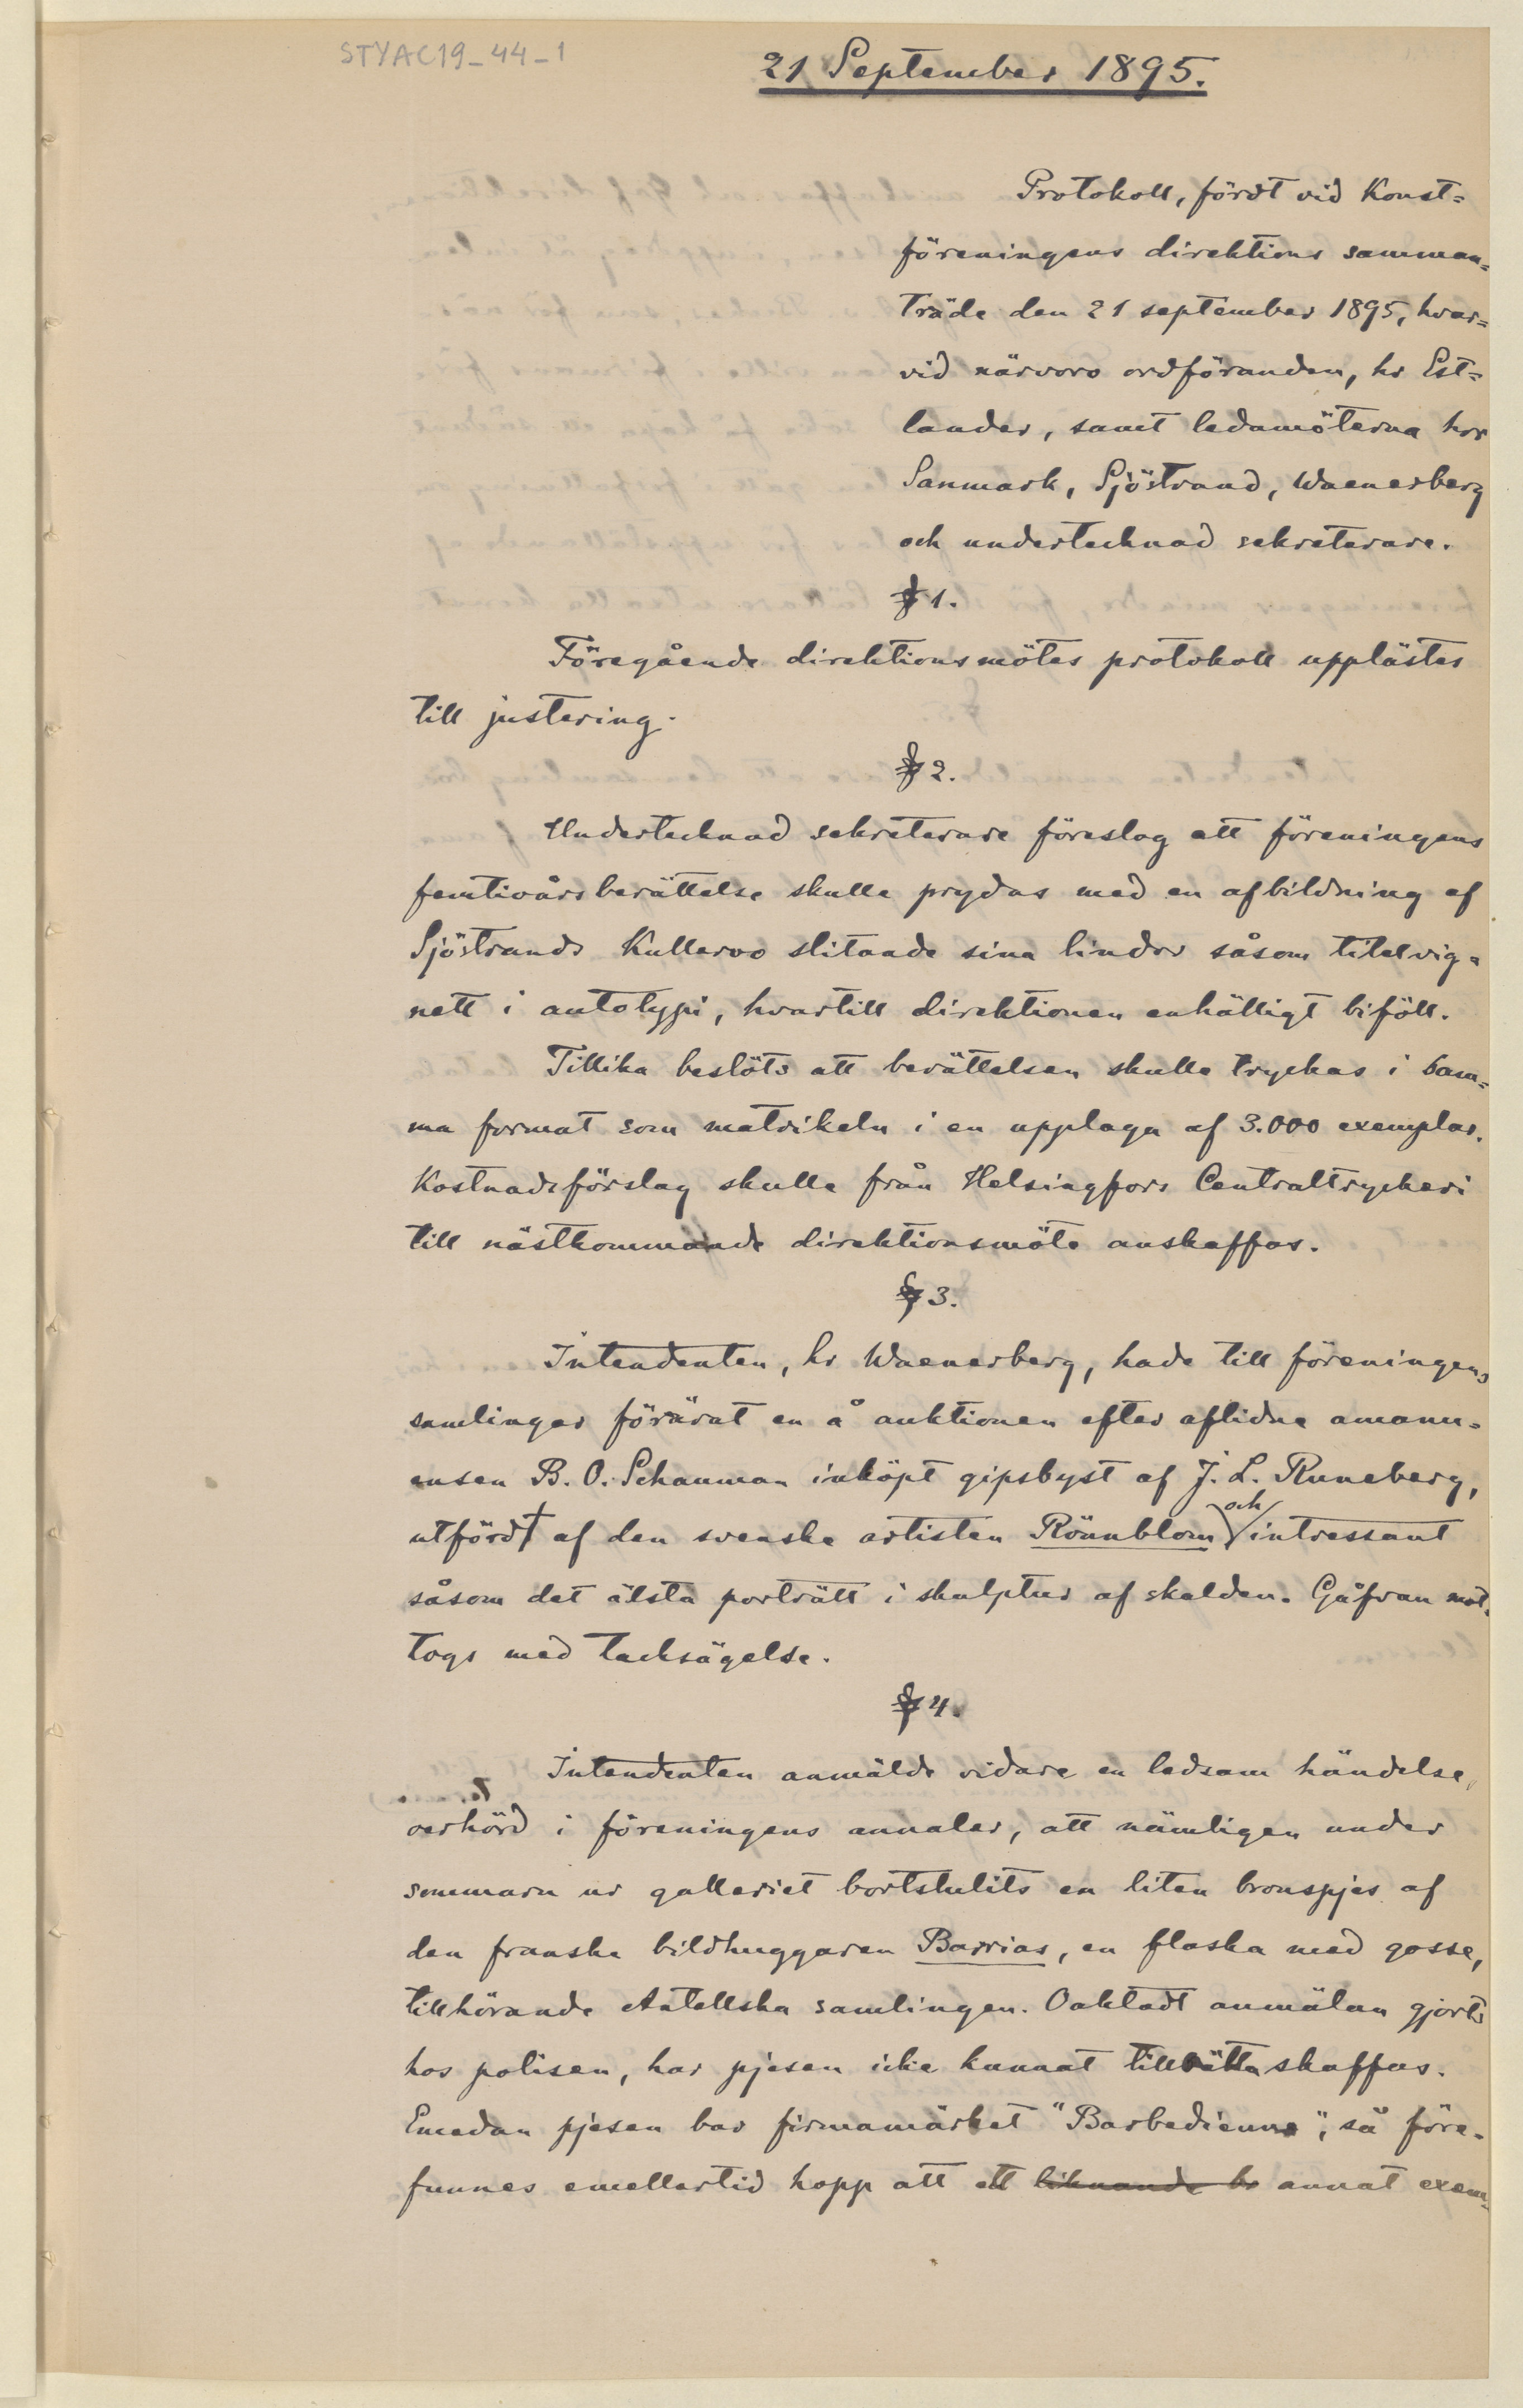 STYAC19_44_1
21 September 1895.
Protokoll, fördt vid Konst=
föreningens direktions samman=
träde den 21 september 1895, hvar=
vid närvoro ordföranden, hr Est=
lander, samt ledamöterna hrr
Sanmark, Sjöstrand, Waenerberg
och undertecknad sekreterare.
§ 1.
Föregående direktionsmötes protokoll upplästes
till justering.
§ 2.
Undertecknad sekreterare föreslog att föreningens
femtioårsberättelse skulle prydas med en afbildning af
Sjöstrands Kullervo slitande sina lindor såsom titelvig=
nett i autotypi, hvartill direktionen enhälligt biföll.
Tillika beslöts att berättelsen skulle tryckas i sam=
ma format som matrikeln i en upplaga af 3.000 exemplar.
Kostnadsförslag skulle från Helsingfors Centraltryckeri
till nästkommande direktionsmöte anskaffas.
§ 3.
Intendenten, hr Waenerberg, hade till föreningens
samlingar förärat en å auktionen efter aflidne amanu=
ensen B. O. Schauman inköpt gipsbyst af J. L. Runeberg,
utfördt af den svenske artisten Rönnblom och intressant
såsom det älsta porträtt i skulptur af skalden. Gåfvan mot=
togs med tacksägelse.
§ 4.
Intendenten anmälde vidare en ledsam händelse,
oerhörd i föreningens annaler, att nämligen under
sommarn ur galleriet bortstulits en liten bronspjes af
den franske bildhuggaren Barrias, en flaska med gosse,
tillhörande Antellska samlingen. Oaktadt anmälan gjorts
hos polisen, har pjesen icke kunnat tillrätta skaffas.
Emedan pjesen bar firmamärket "Barbedienne", så före=
funnes emellertid hopp att ett liknande br annat exem=